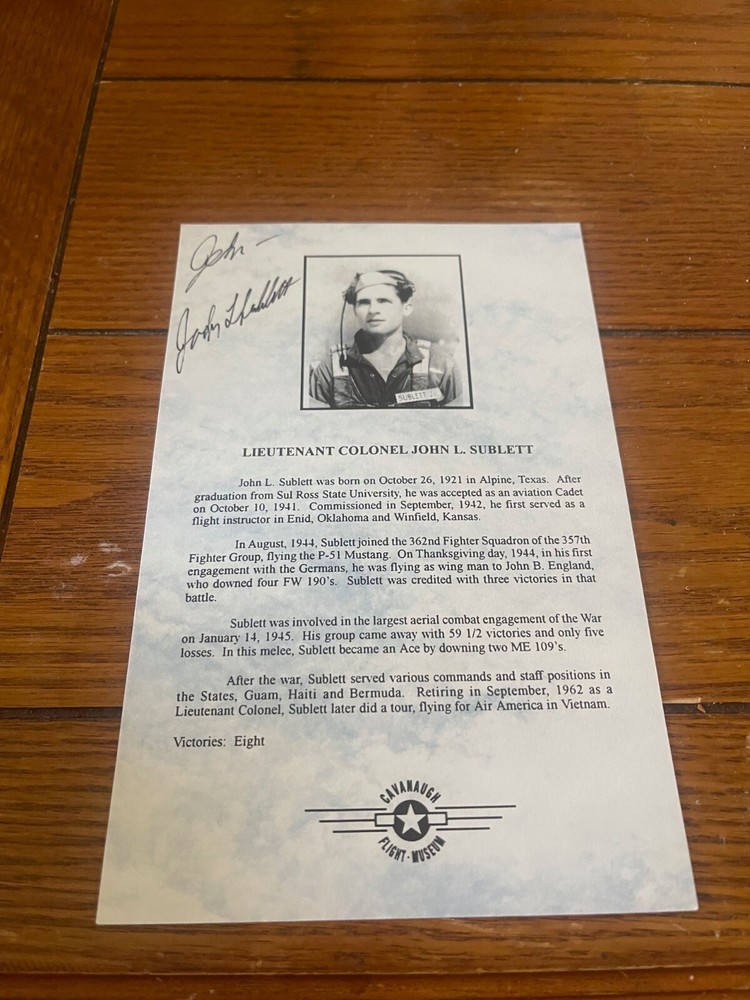 John –
Jack L Sublett
SUBLETT JL
LIEUTENANT COLONEL JOHN L. SUBLETT
John L. Sublett was born on October 26, 1921 in Alpine, Texas. After
graduation from Sul Ross State University, he was accepted as an aviation Cadet
on October 10, 1941. Commissioned in September, 1942, he first served as a
flight instructor in Enid, Oklahoma and Winfield, Kansas.
In August, 1944, Sublett joined the 362nd Fighter Squadron of the 357th
Fighter Group, flying the P-51 Mustang. On Thanksgiving day, 1944, in his first
engagement with the Germans, he was flying as wing man to John B. England,
who downed four FW 190's. Sublett was credited with three victories in that
battle.
Sublett was involved in the largest aerial combat engagement of the War
on January 14, 1945. His group came away with 59 1/2 victories and only five
losses. In this melee, Sublett became an Ace by downing two ME 109's.
After the war, Sublett served various commands and staff positions in
the States, Guam, Haiti and Bermuda. Retiring in September, 1962 as a
Lieutenant Colonel, Sublett later did a tour, flying for Air America in Vietnam.
Victories: Eight
CAVANAUGH
FLIGHT · MUSEUM